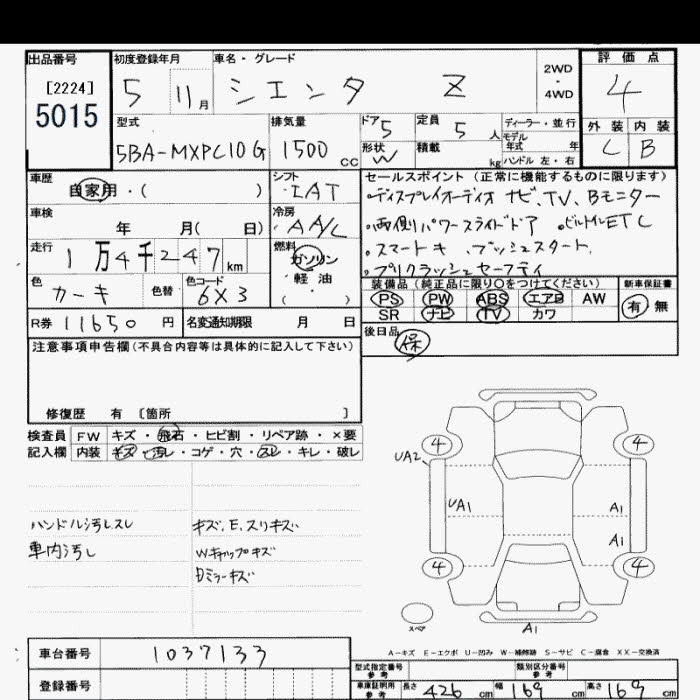 出品番号 初度登録年月 車名・グレード 2WD・4WD 評価点
[2224] 5015 5 11月 シエンタ Z 4
型式 排気量 ドア 5 定員 5人 ディーラー・並行 外装 内装
5BA-MXPC10G 1500cc 形状 W 積載 kg モデル年式 年 ハンドル 左・右 C B
車歴 シフト セールスポイント (正常に機能するものに限ります)
自家用・( ) IAT ・ディスプレイオーディオ ナビ、TV、Bモニター
車検 冷房 ・両側パワースライドドア ・ビルトインETC
年 月( 日) AA/C ・スマートキー プッシュスタート
走行 1万4千247km 燃料 ガソリン ・プリクラッシュセーフティ
色 色替 色コード 軽油 装備品 (純正品に限り○をつけてください) 新車保証書
カーキ 6X3 ( ) PS PW ABS エアB AW 有 無
SR ナビ TV カワ
R券 11650円 名変通知期限 月 日 後日品 保
注意事項申告欄 (不具合内容等は具体的に記入して下さい)
修復歴 有 [箇所 ]
検査員 FW キズ・飛石・ヒビ割・リペア跡・×要
記入欄 内装 キズ・汚レ・コゲ・穴・スレ・キレ・破レ
ハンドル汚レスレ キズ、E、スリキズ
車内汚レ Wキャップキズ
Dミラーキズ
4 4
UA2
UA1 A1
A1
4 4
スペア A1
A-キズ E-エクボ U-凹み W-補修跡 S-サビ C-腐食 XX-交換済
車台番号 1037133
登録番号
型式指定番号 参考 類別区分番号 参考
車庫証明用 参考 長さ 426cm 幅 169cm 高さ 169cm